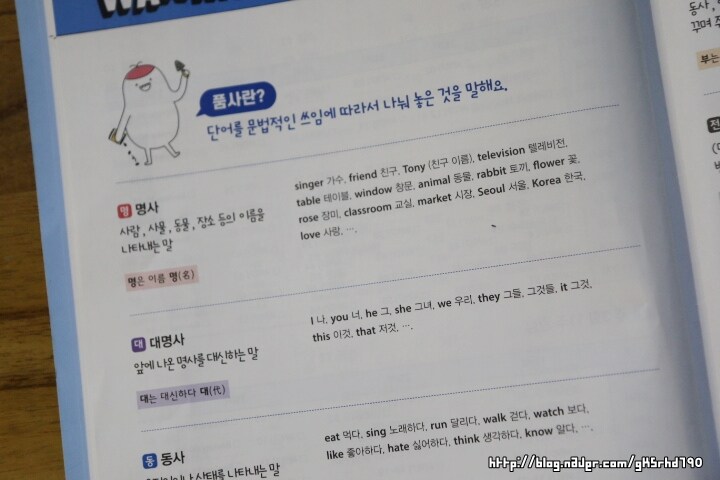 품사란?
단어를 문법적인 쓰임에 따라서 나눠 놓은 것을 말해요.
명 명사
사람, 사물, 동물, 장소 등의 이름을
나타내는 말
명은 이름 명(名)
singer 가수, friend 친구, Tony (친구 이름), television 텔레비전,
table 테이블, window 창문, animal 동물, rabbit 토끼, flower 꽃,
rose 장미, classroom 교실, market 시장, Seoul 서울, Korea 한국,
love 사랑, ….
대 대명사
앞에 나온 명사를 대신하는 말
대는 대신하다 대(代)
I 나, you 너, he 그, she 그녀, we 우리, they 그들, 그것들, it 그것,
this 이것, that 저것, ….
동 동사
상태를 나타내는 말
eat 먹다, sing 노래하다, run 달리다, walk 걷다, watch 보다,
like 좋아하다, hate 싫어하다, think 생각하다, know 알다, ….
동사,
꾸며
부는
전
http://blog.naver.com/gksrhd790